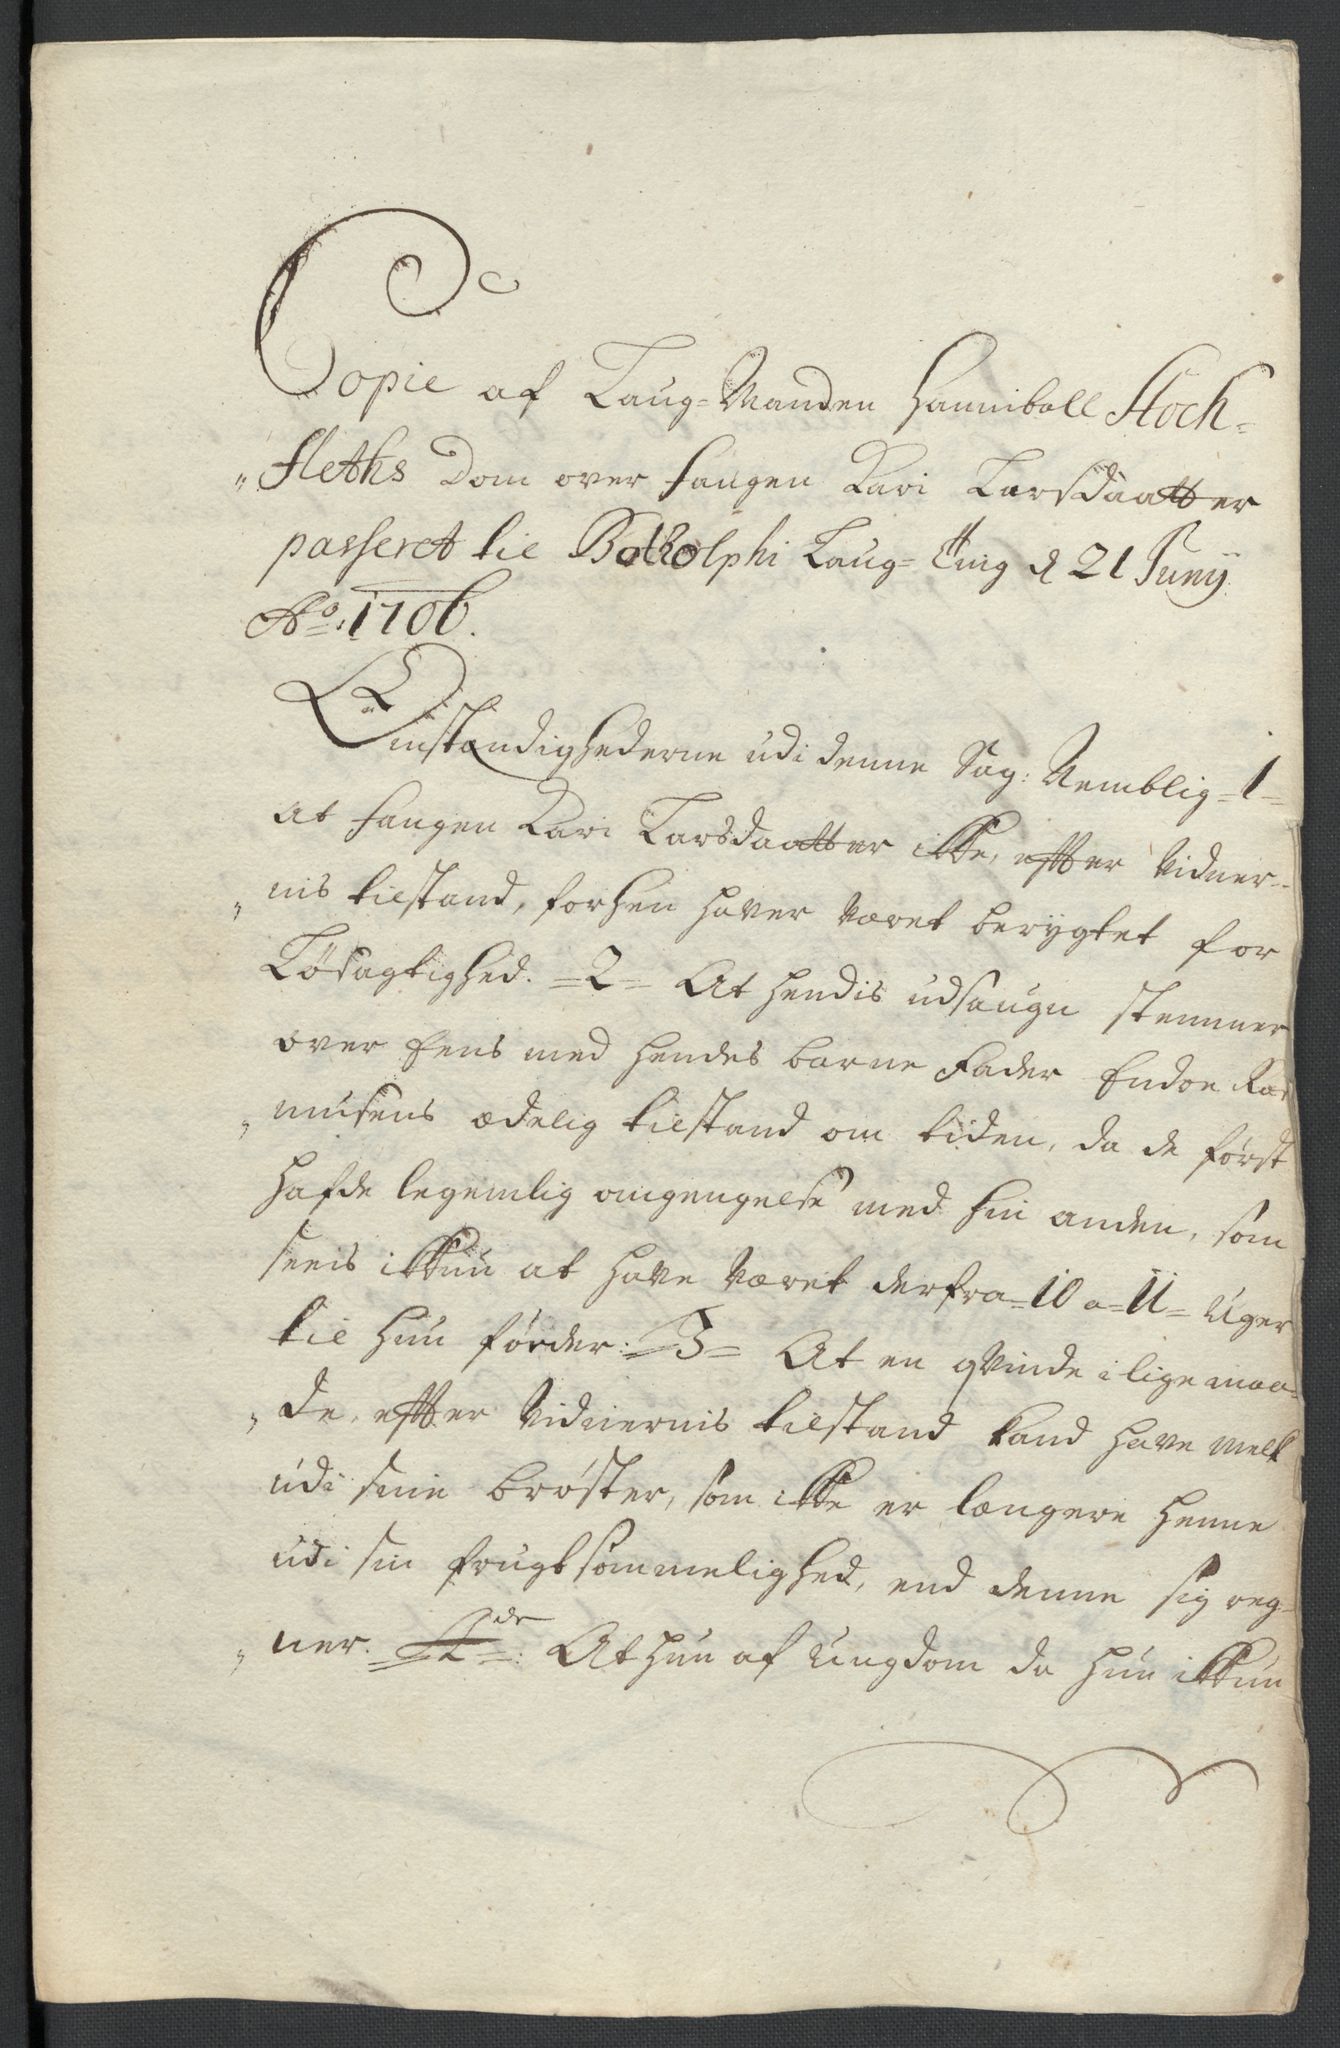 Copie af Laug-Manden Hanniball Stoch-
„fleths Dom over fangen Kari Larsdaatter
passeret til Botholphi Laug-Ting d 21 Junÿ
Ao: 1706.
Omstændighederne udi denne Sag: Nemblig=1=
at fangen Kari Larsdaatter ikke, effter Vidner-
„nis tilstand, forhen haver været berygtet for
Løsagtighed. =2= At hendis udsaugn stemmer
over Eens med hendes barne Fader Endre Ras
„musens ædelig tilstand om tiden, da de først
hafde legemlig omgengelse med hin anden, som
seeis ikkun at have været derfra=10 a=11= Uger
til hun føeder: =3= At en qvinde i lige maa-
„de, effter Vidnernis tilstand kand have melk
udi sine brøster, som ikke er længere henne
udi sin frugtsommelighed, end denne sig reg-
„ner. =4de=: At hun af Ungdom da hun ikkun